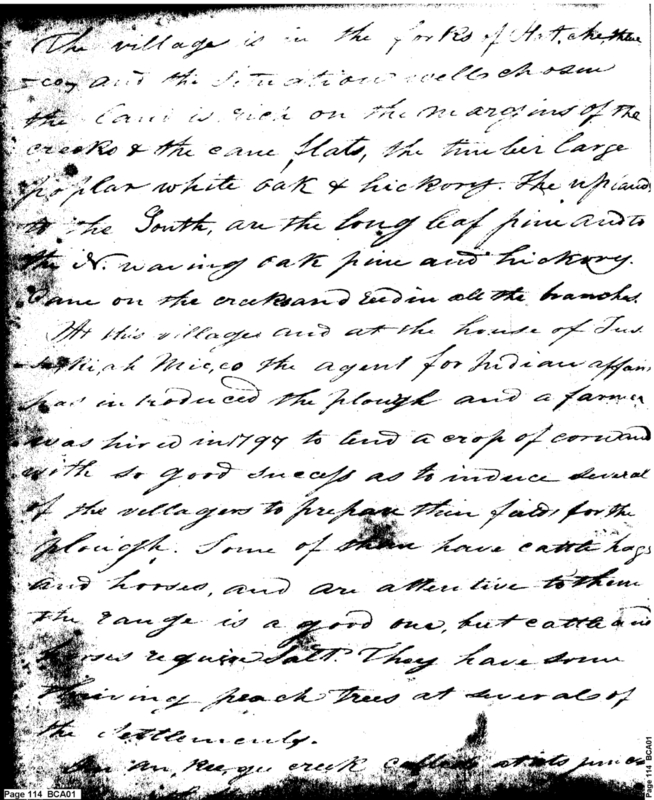 The village is in the forks of Hat, che, thlue
-cco, and the situation well chosen
the land is rich on the margins of the
creeks & the cane flats, the timber large
poplar white oak & hickory. The uplands
to the South, are the long leaf pine and to
the N. waving oak pine and hickory.
Cane on the creeks and reed in all the branches.
At this villages and at the house of Tus
Micco the agent for Indian affairs
has introduced the plough and a farmer
was hired in 1797 to tend a crop of corn and
with so good success as to induce several
of the villagers to prepare their fields for the
plough. Some of them have cattle hogs
and horses, and are attentive to them
the range is a good one, but cattle and
horses require Salt. They have some
thriving peach trees at severals of
the Settlements.
creek called at its junc
Page 114 BCA01
Page 114 BCA01